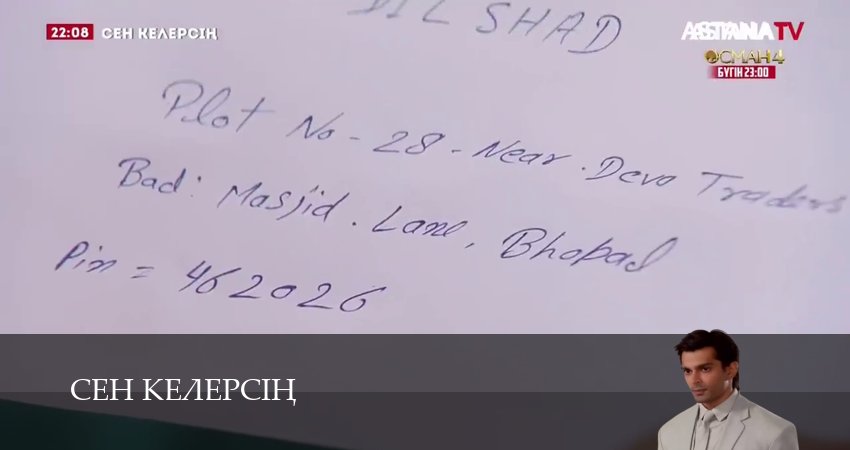 22:08 СЕН КЕЛЕРСІҢ
ASTANA TV
ОСМАН 4
БҮГІН 23:00
DILSHAD
Plot No - 28 - Near . Deva Traders
Bad: Masjid . Lane, Bhopal
Pin = 462026
СЕН КЕЛЕРСІҢ